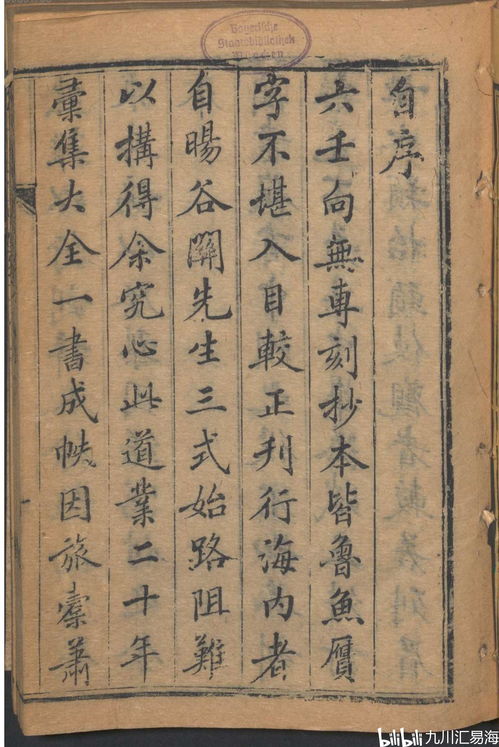 自序
六壬向無專刻抄本皆魯魚贋
字不堪入目較正刋行海内者
自暘谷關先生三式始路阻難
以搆得余究心此道業二十年
彙集大全一書成帙因旅橐蕭
Bayerische
Staatsbibliothek
München
bilibili 九川汇易海